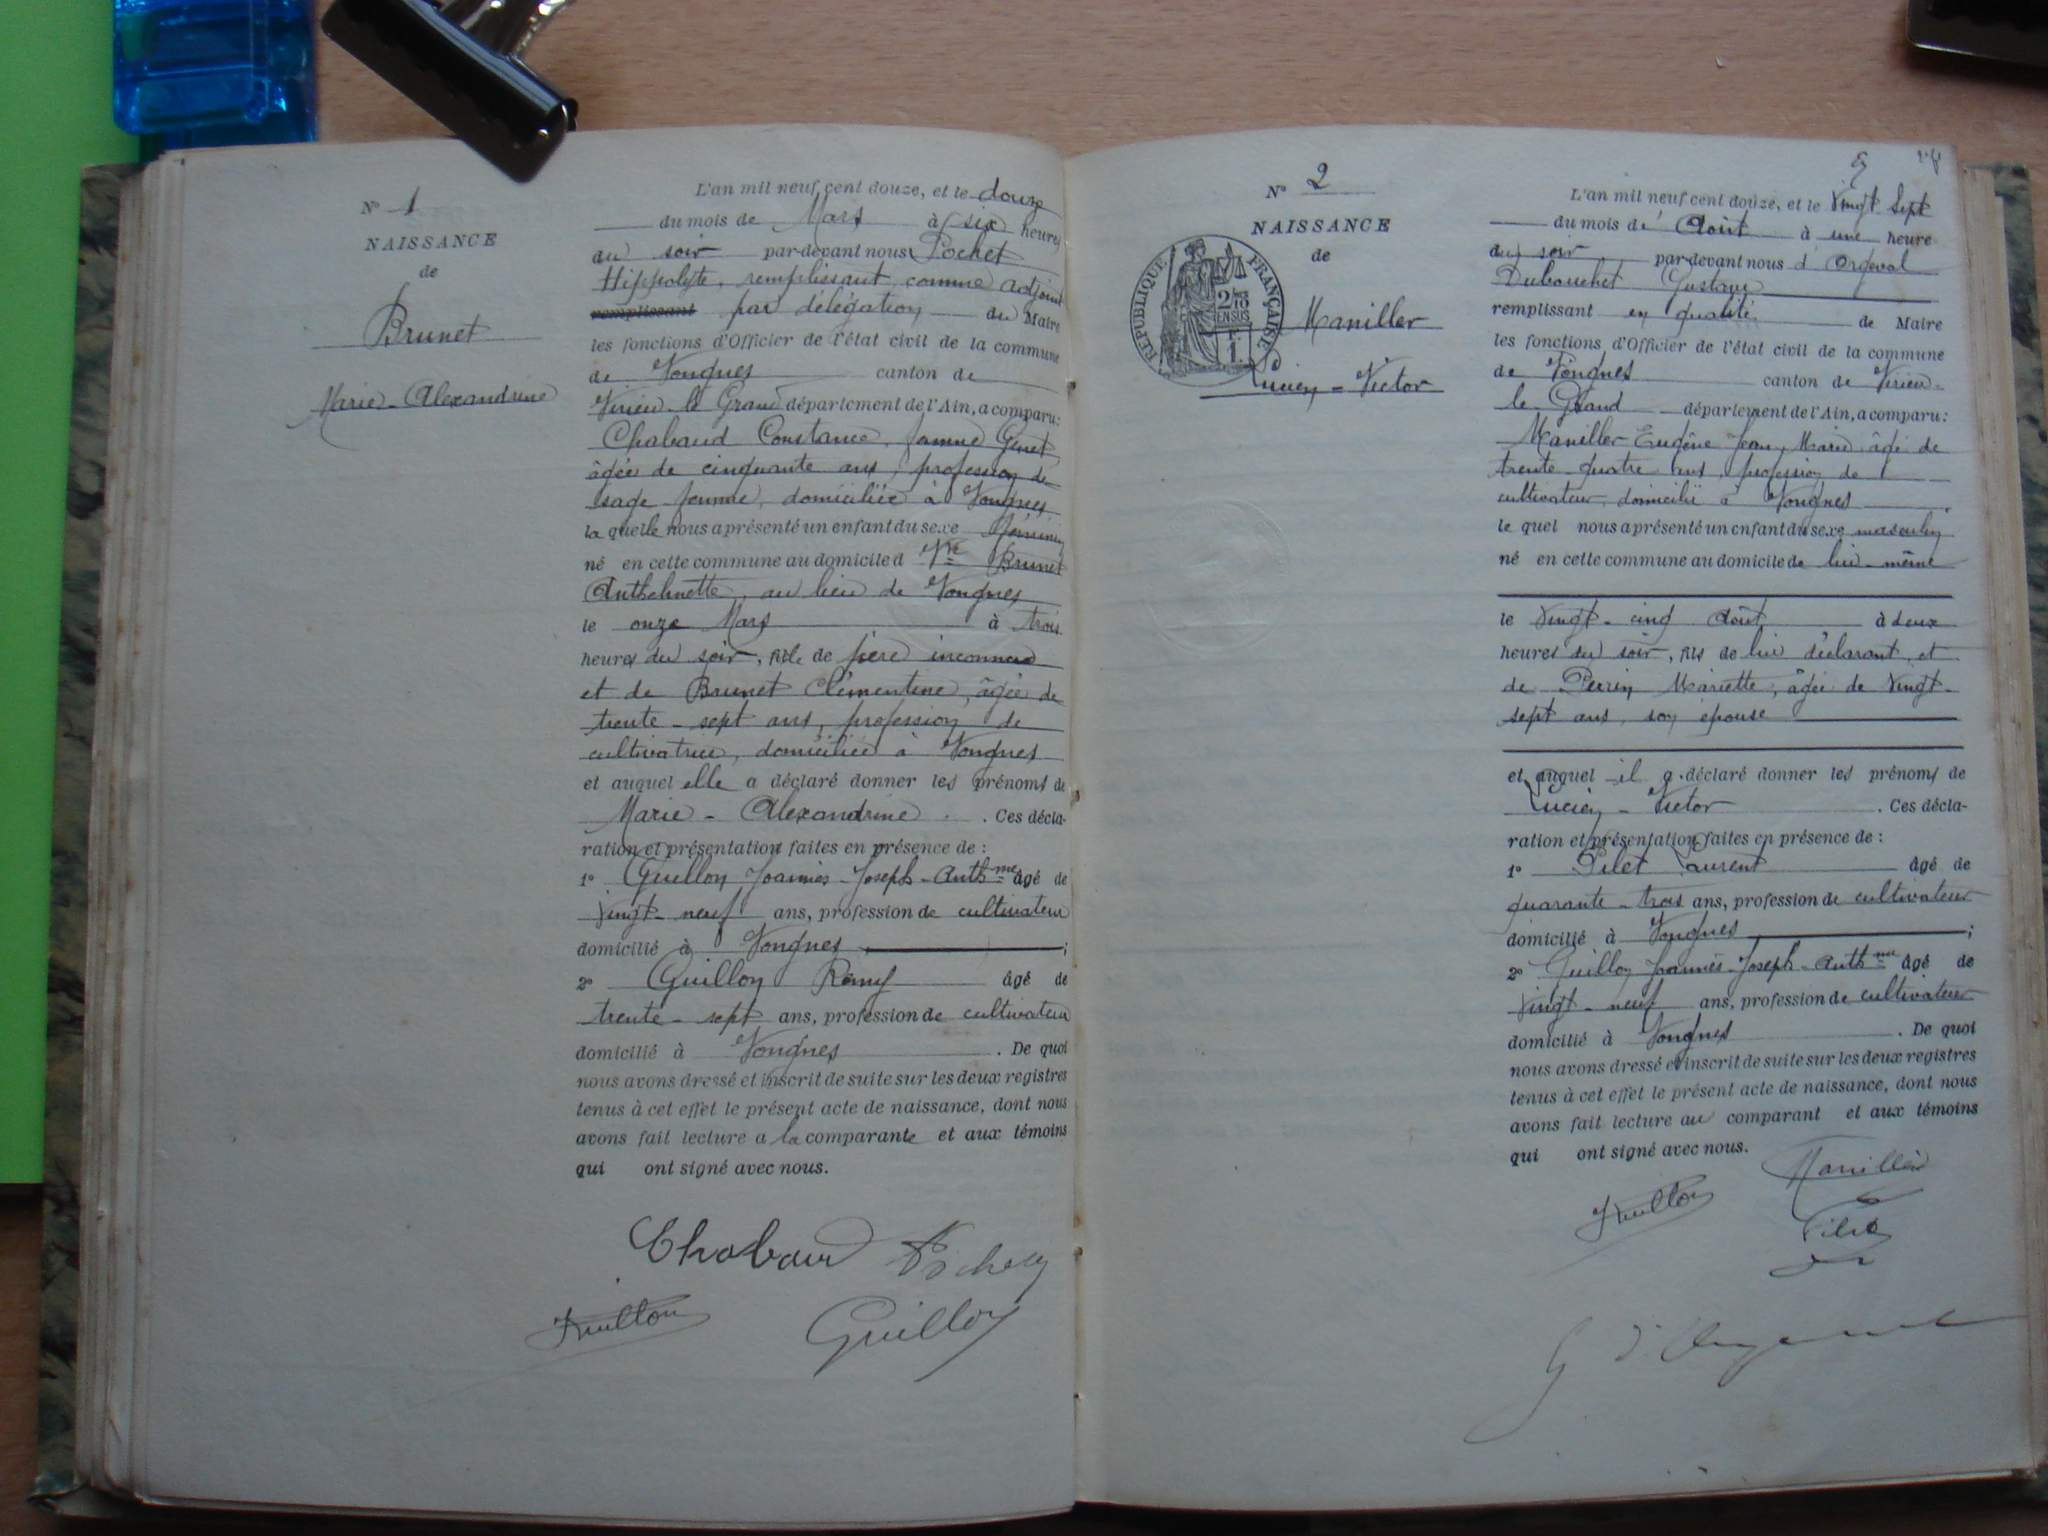 N° 1
NAISSANCE
de
Brunet
Marie-Alexandrine
L'an mil neuf cent douze, et le douze
du mois de Mars à six heures
du soir par-devant nous Pochet
Hippolyte, remplissant comme adjoint
remplissant par délégation du Maire
les fonctions d'Officier de l'état civil de la commune
de Vongnes canton de
Virieu-le Grand département de l'Ain, a comparu:
Chabaud Constance, femme Genet,
âgée de cinquante ans, profession de
sage femme, domiciliée à Vongnes
la quelle nous a présenté un enfant du sexe féminin
né en cette commune au domicile d Vve Brunet
Anthelmette, au lieu de Vongnes
le onze Mars à trois
heures du soir, fille de père inconnu
et de Brunet Clémentine, âgée de
trente-sept ans, profession de
cultivatrice, domiciliée à Vongnes
et auquel elle a déclaré donner les prénoms de
Marie-Alexandrine. Ces décla-
ration et présentation faites en présence de :
1° Guillon Joannès-Joseph-Anthme âgé de
vingt-neuf ans, profession de cultivateur
domicilié à Vongnes ;
2° Guillon Rémy âgé de
trente-sept ans, profession de cultivateur
domicilié à Vongnes. De quoi
nous avons dressé et inscrit de suite sur les deux registres
tenus à cet effet le présent acte de naissance, dont nous
avons fait lecture a la comparante et aux témoins
qui ont signé avec nous.
Chabaud Pochet
Guillon Guillon
N° 2
NAISSANCE
de
RÉPUBLIQUE FRANÇAISE
2/10
EN SUS
1
Maniller
Lucien-Victor
L'an mil neuf cent douze, et le vingt-sept
du mois d' Août à une heure
du soir par-devant nous d'Orgeval
Dubouchet Gustave
remplissant en qualité de Maire
les fonctions d'Officier de l'état civil de la commune
de Vongnes canton de Virieu-
le Grand département de l'Ain, a comparu:
Maniller Eugène Jean, Marie, âgé de
trente-quatre ans, profession de
cultivateur, domicilié à Vongnes
le quel nous a présenté un enfant du sexe masculin
né en cette commune au domicile de lui-même
le vingt-cinq Août à deux
heures du soir, fils de lui déclarant, et
de Perrin Mariette, âgée de vingt-
sept ans, son épouse
et auquel il a déclaré donner les prénoms de
Lucien-Victor. Ces décla-
ration et présentation faites en présence de :
1° Pilet Laurent âgé de
quarante-trois ans, profession de cultivateur
domicilié à Vongnes ;
2° Guillon Joannès-Joseph-Anthme âgé de
vingt-neuf ans, profession de cultivateur
domicilié à Vongnes. De quoi
nous avons dressé et inscrit de suite sur les deux registres
tenus à cet effet le présent acte de naissance, dont nous
avons fait lecture au comparant et aux témoins
qui ont signé avec nous.
Maniller
Guillon
Pilet
G d'Orgeval